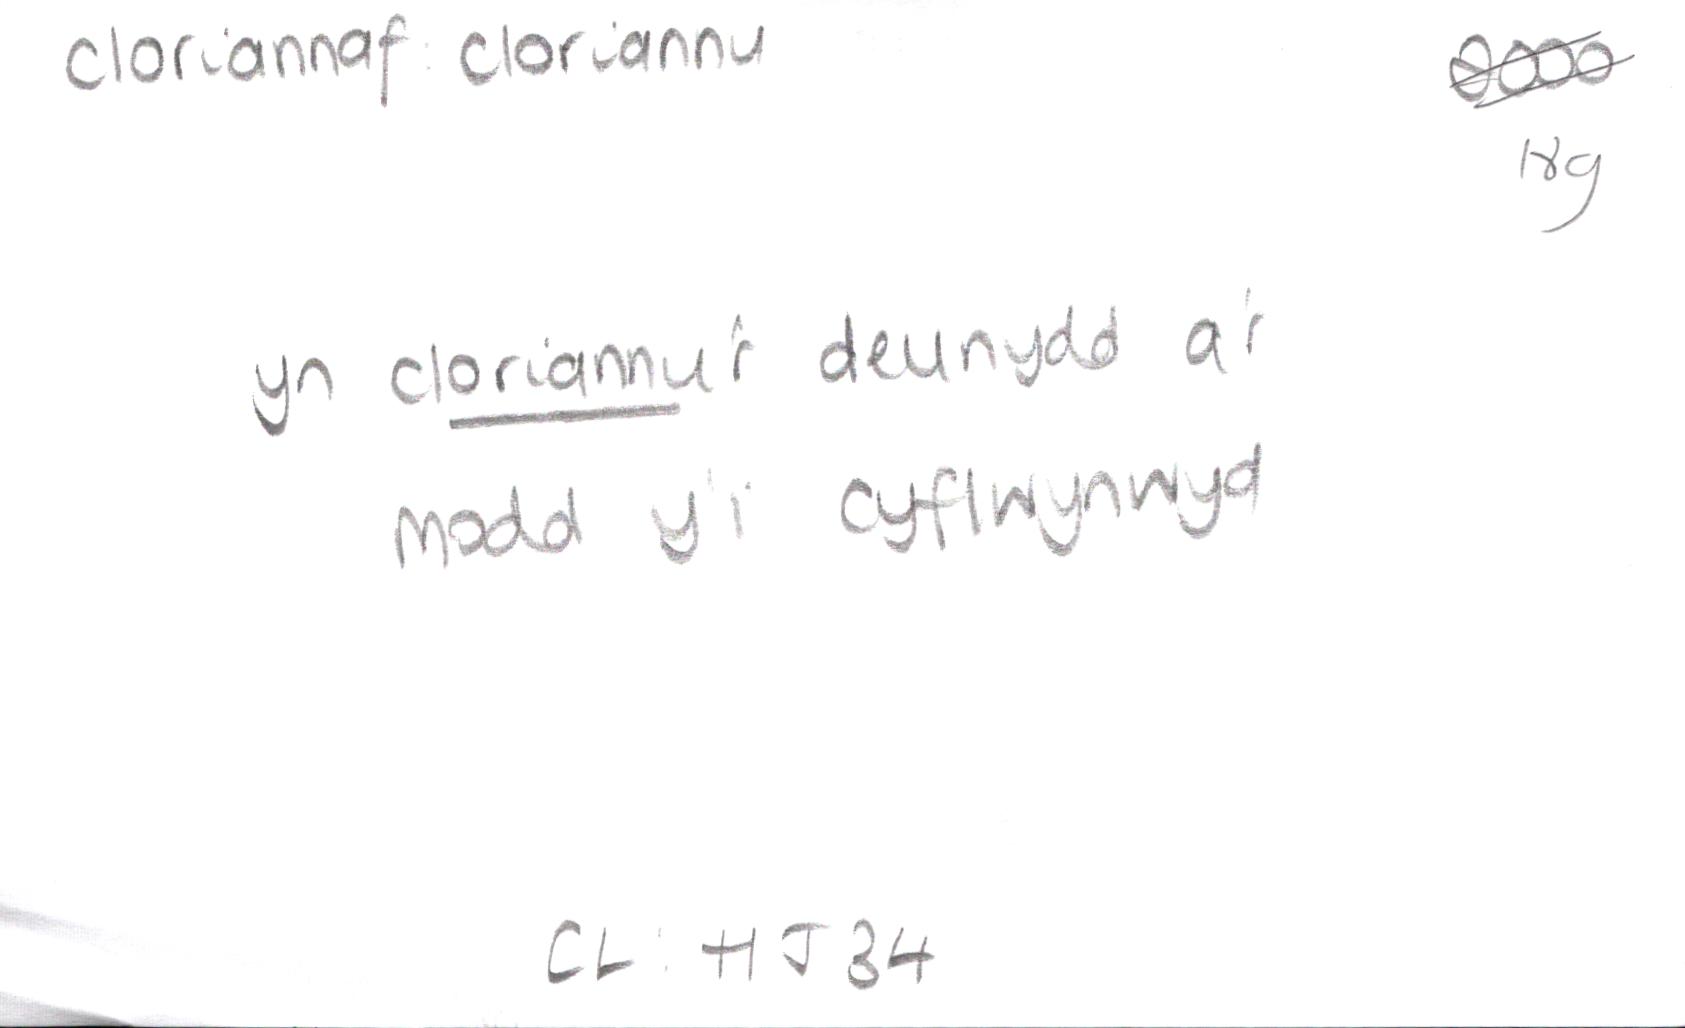 cloriannaf: cloriannu
yn cloriannu'r deunydd a'r
modd y'i cyflwynwyd
CL: HJ34